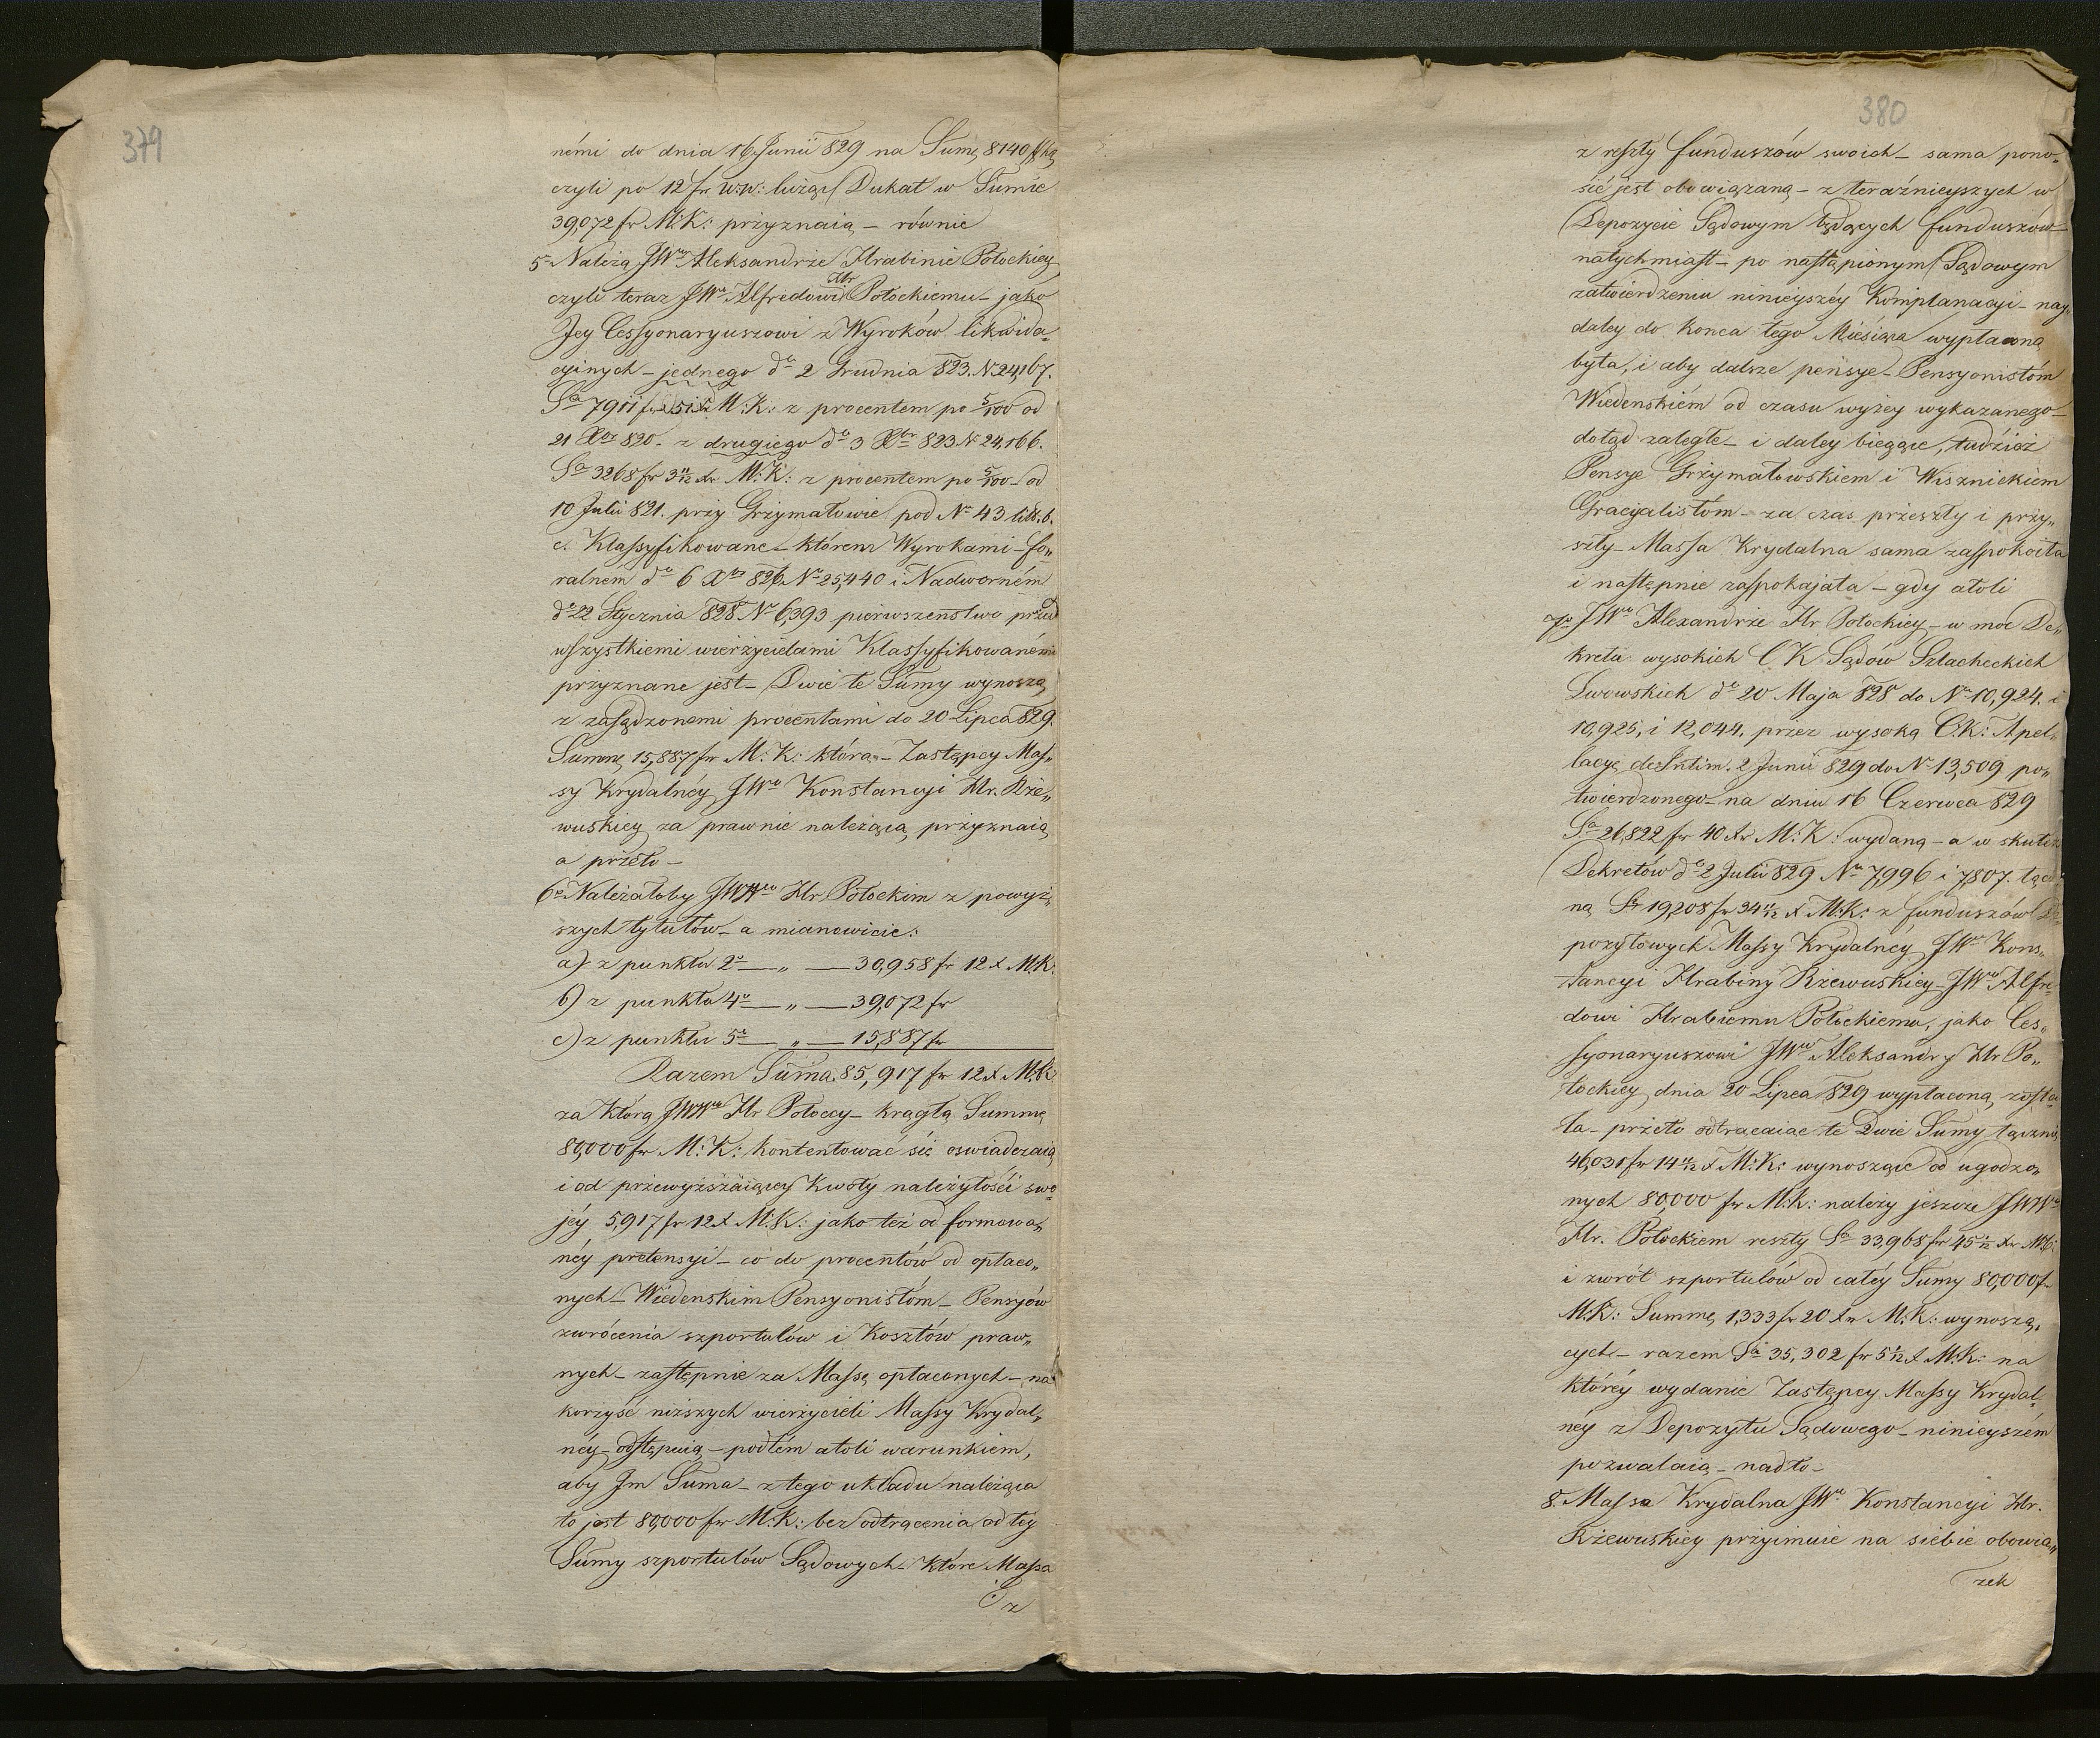 379
némi do dnia 16 Junii 829 na Sumę 8140
czyli po 12 fr w:w: licząc Dukat w Sumie
39,072 fr M:K: przyznaią – równie
5 Należą JWey Aleksandrze Hrabinie Potockiey
czyli teraz JWu Alfredowi Hr Potockiemu – jako
Jey Cessyonaryuszowi z Wyroków likwida„
cyinych – jednego da 2 Grudnia 823. N. 24,167.
Sa 7911 fr M:K: z procentem po 5/100 od
21 Xbr 820 – z drugiego da 3 Xbr 823 N 24,166.
Sa 3268 fr 3 11/12 xr M:K: z procentem po 5/100 – od
10 Julii 821. przy Grzymałowie pod No 43 litt. b.
c. Klassyfikowane – którem Wyrokami – fo„
ralném da 6 Xbr 826 No 25,440 i Nadworném
da 22 Stycznia 828 No 6,393 pierwszenstwo przed
wszystkiemi wierzycielami Klassyfikowanémi
przyznane jest – Dwie te Sumy wynoszą
z zasądzonemi procentami do 20 Lipca 829.
Summę 15,887 fr M:K: którą – Zastępcy Mas„
sy Krydalnéy JWey Konstancyi Hr. Rze„
wuskiey za prawnie należącą przyznaią
a przeto –
6o Należałoby JWWnu Hr Potockim z powyż„
szych tytułów – a mianowicie:
a) z punktu 2o — „ — 30,958 fr 12 x M.K.
b) z punktu 4o — „ — 39,072 fr
c) z punktu 5o — „ — 15,887 fr
Razem Suma 85,917 fr 12 x M:K:
za którą JWWni Hr Potoccy – krągłą Summą
80,000 fr M:K: kontentować się oswiadczaią
i od przewyższaiącey Kwoty należytości swo„
jéy 5,917 fr 12 x M:K: jako też od formowa„
néy pretensyi – co do procentów od opłaco„
nych – Wiedenskim Pensyonistóm – Pensyów
zwrócenia szportulów i Kosztów praw„
nych – zastępnie za Massę opłaconych – na
korzyść niższych wierzycieli Massy Krydal„
néy – odstępuią – podtém atoli warunkiem,
aby Jm Suma – z tego układu należąca
to jest 80,000 fr M:K: bez odtrącenia od téy
Sumy szportulów Sądowych – które Massa
z
380
z reszty funduszów swoich – sama pono„
sić jest obowiązaną – z teraźnieyszych w
Depozycie Sądowym będących funduszów –
natychmiast – po nastąpionym Sądowym
zatwierdzeniu ninieyszéy Komplanacyi – nay„
daley do konca tego Miesiąca wypłaconą
była, i aby dalsze pensye – Pensyonistóm
Wiedenskiém od czasu wyżey wykazanego –
dotąd zaległe – i daley bieżące, tudzież
Pensye Grzymałowskiem i Wisznickiem
Gracyalistóm – za czas przeszły i przy„
szły – Massa Krydalna sama zaspokoiła
i następnie zaspokajała – gdy atoli
7o JWey Alexandrze Hr Potockiey – w moc De„
kretu wysokich C.K. Sądów Szlacheckich
Lwowskich da 20 Maja 828 do No 10,924. i
10,925, i 12,044. przez wysoką C:K: Apel„
lacyę de Intim. 2 Junii 829 do No 13,509 po„
twierdzonego – na dniu 16 Czerwca 829
Sa 26,822 fr 40 xr M:K: wydaną – a w skutek
Dekretów da 2 Julii 829 No 7,996 i 7,807. łącz
ną Sa 19,208 fr 34 11/12 x M:K: z funduszów De
pozytowych Massy Krydalnéy JWey Kons„
tancyi Hrabiny Rzewuskiey – JWu Alfre„
dowi Hrabiemu Potockiemu, jako Ces„
syonaryuszowi JWey Aleksandry Hr Po„
tockiey dnia 20 Lipca 829 wypłaconą zosta
ła – przeto odtrącaiąc te Dwie Sumy łącznie
46,031 fr 14 11/12 x M:K: wynoszące od ugodzo„
nych 80,000 fr M:K: należy jeszcze JWWnu
Hr. Potockiem reszty Sa 33,968 fr 45 1/12 xr M:K:
i zwrót szportulów od całéy Sumy 80,000 fr
M:K: Summę 1,333 fr 20 xr M:K: wynoszą„
cych – razem Sa 35,302 fr 5 1/12 x M:K: na
któréy wydanie Zastępcy Massy Krydal„
néy z Depozytu Sądowego – ninieyszém
pozwalaią – nadto –
8. Massa Krydalna JWey Konstancyi Hr.
Rzewuskiey przyimuie na siebie obowią„
zek